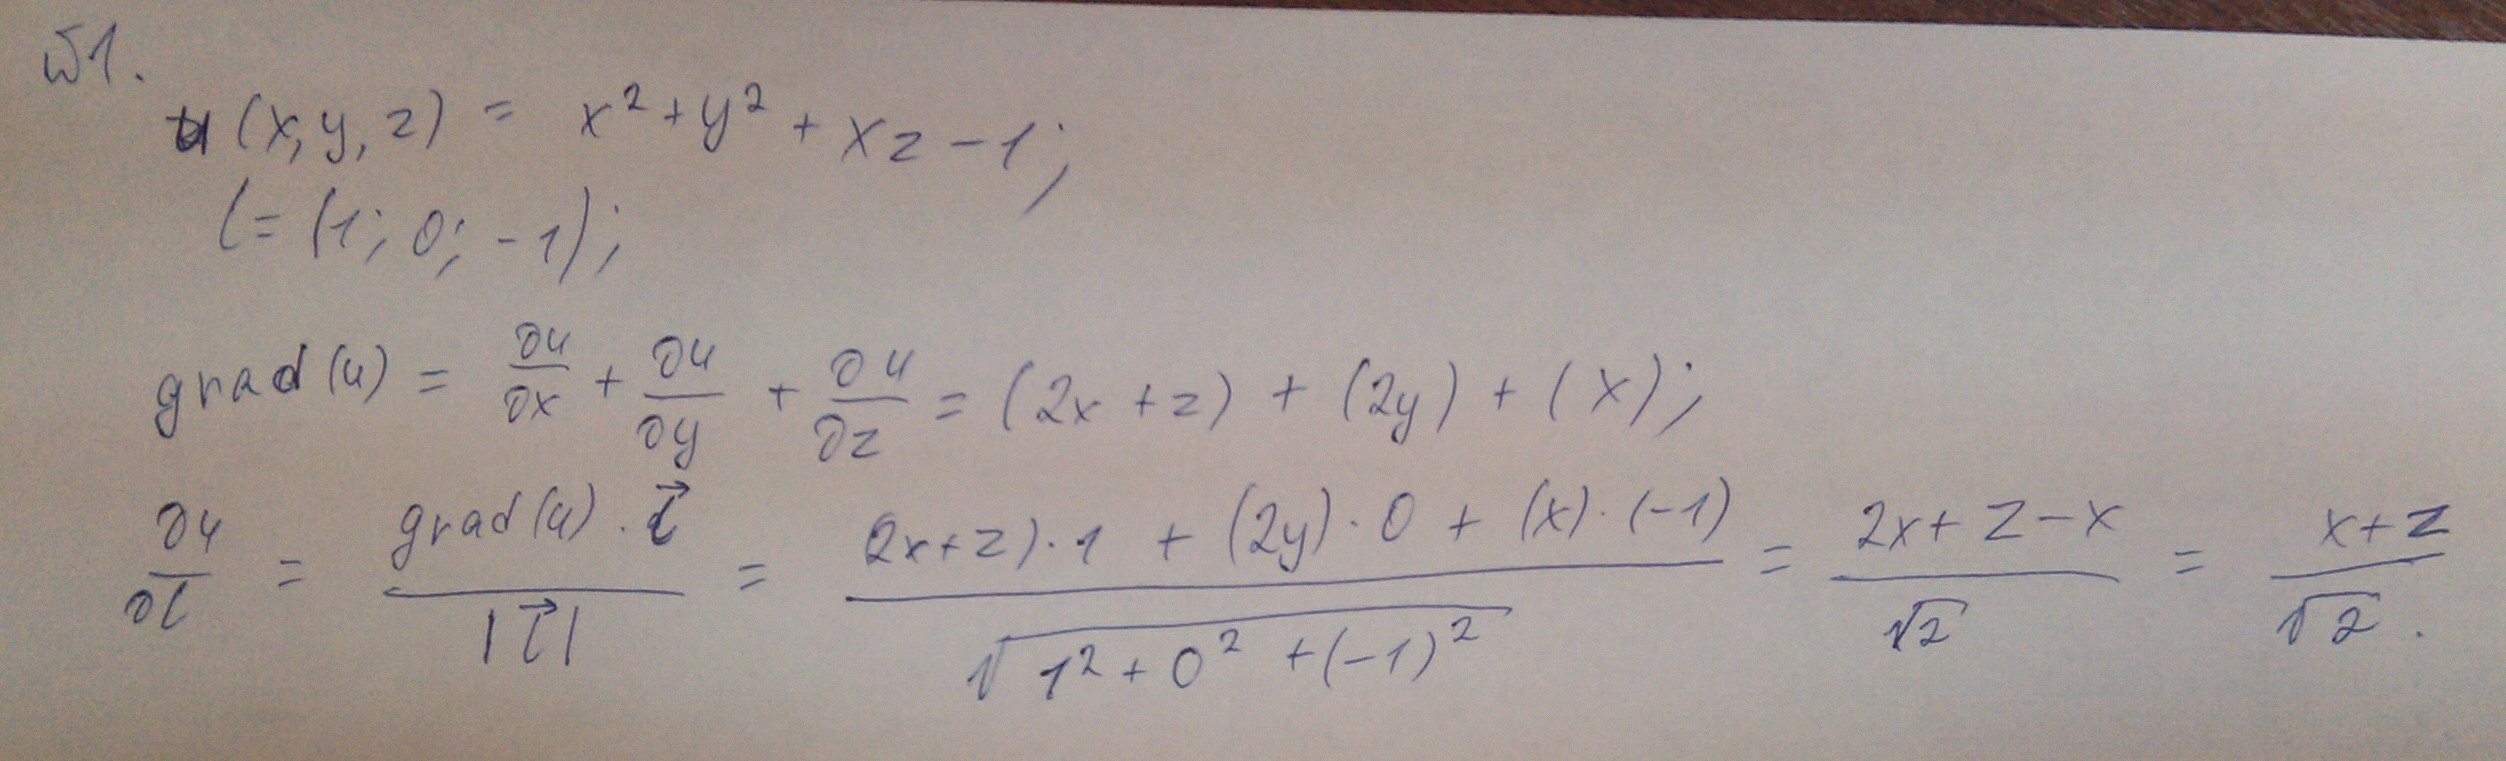 №1.
u(x,y,z) = x² + y² + xz - 1;
l = (1; 0; -1);
grad(u) = ∂u/∂x + ∂u/∂y + ∂u/∂z = (2x + z) + (2y) + (x);
∂u/∂l = grad(u) · l⃗ / |l⃗| = 2x+z) · 1 + (2y) · 0 + (x) · (-1) / √(1² + 0² + (-1)²) = 2x + z - x / √2 = x + z / √2.